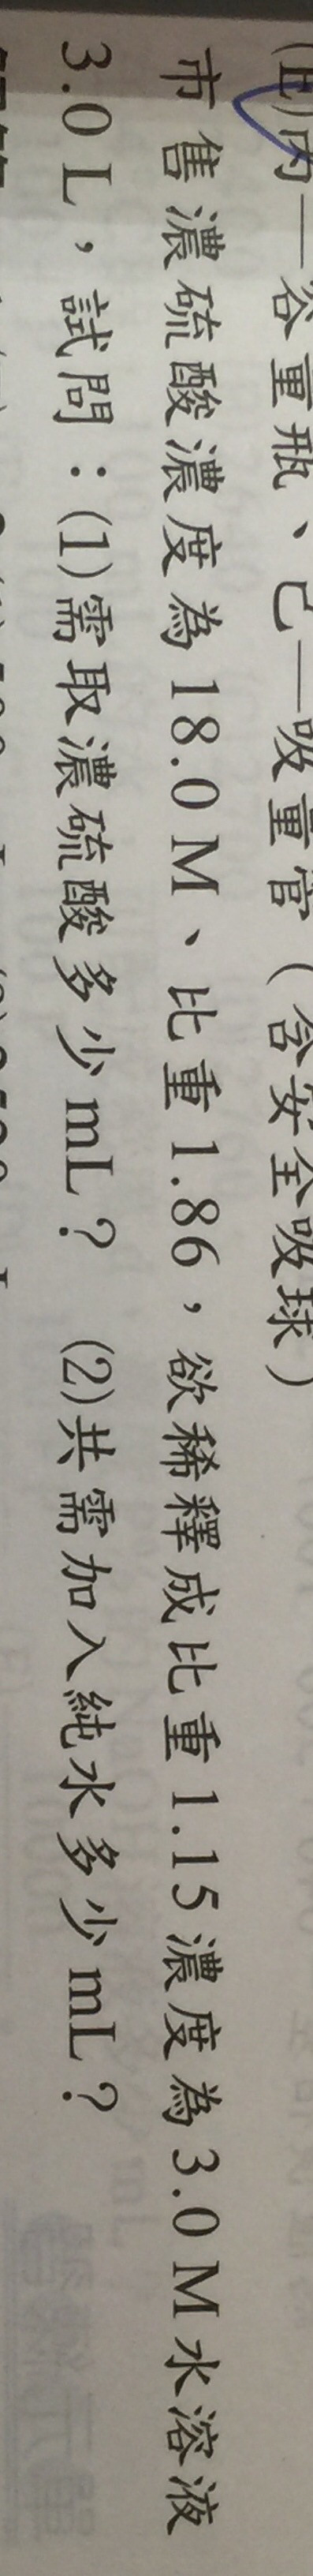 (三)丙—容量瓶、己—吸量管（含安全吸球）
市售濃硫酸濃度為18.0 M、比重1.86，欲稀釋成比重1.15濃度為3.0 M水溶液
3.0 L，試問：(1)需取濃硫酸多少mL？ (2)共需加入純水多少mL？